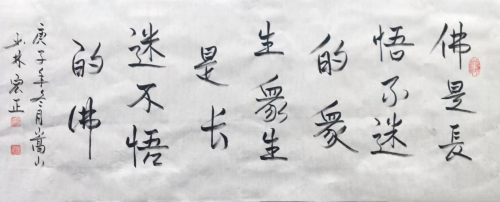 佛是長
悟不迷
的衆
生衆生
是长
迷不悟
的佛
庚子年冬月嵩山
少林寰正